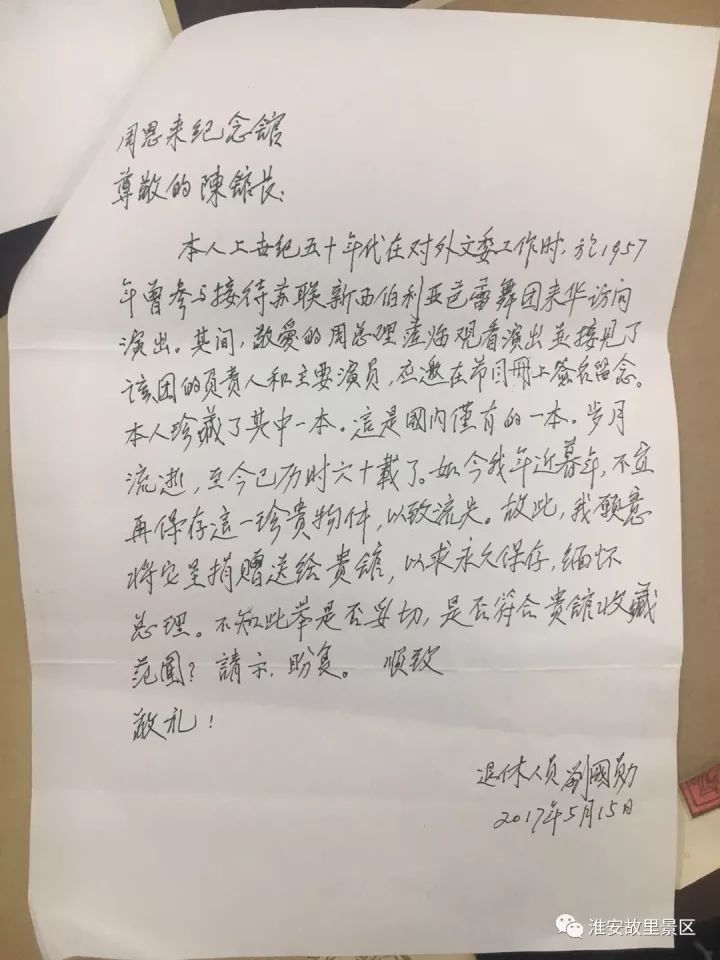 周恩来纪念館
尊敬的陳館长：
本人上世纪五十年代在对外文委工作时，於1957
年曾参与接待苏联新西伯利亚芭蕾舞团来华访问
演出。其间，敬爱的周总理莅临观看演出並接见了
该团的负责人和主要演员，应邀在节目册上签名留念。
本人珍藏了其中一本。這是國内僅有的一本。岁月
流逝，至今已历时六十載了。如今我年近暮年，不宜
再保存這一珍貴物件，以致流失。故此，我願意
将它呈捐赠送给貴館，以求永久保存，缅怀
总理。不知此举是否妥切，是否符合貴館收藏
范圍？請示，盼复。 顺致
敬礼！
退休人员 劉國勛
2017年5月15日
淮安故里景区